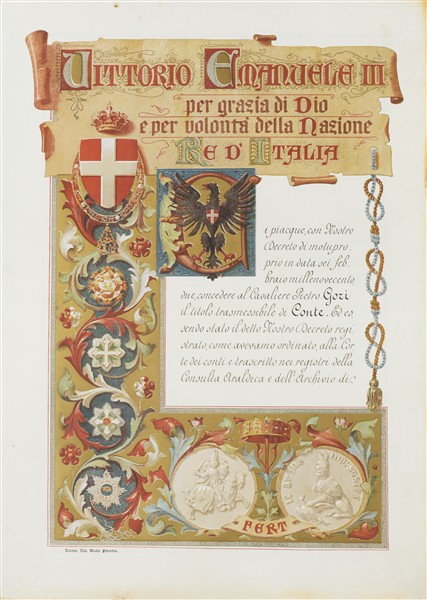 VITTORIO EMANUELE III
per grazia di Dio
e per volontà della Nazione
RE D'ITALIA
Ci piacque, con Nostro
Decreto di motupro,
prio in data sei feb,
braio millenovecento,
due, concedere al Cavaliere Pietro Gozi
il titolo trasmessibile di Conte. Ed es,
sendo stato il detto Nostro Decreto regi,
strato, come avevamo ordinato, alla Cor,
te dei conti e trascritto nei registri della
Consulta Araldica e dell'Archivio di:
FERT